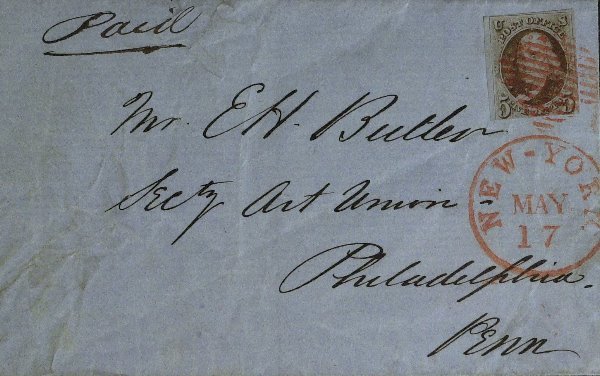 Paid
POST OFFICE
5 5
Mr. E H. Butler
Secty Art Union
Philadelphia.
Penn
NEW-YORK
MAY
17